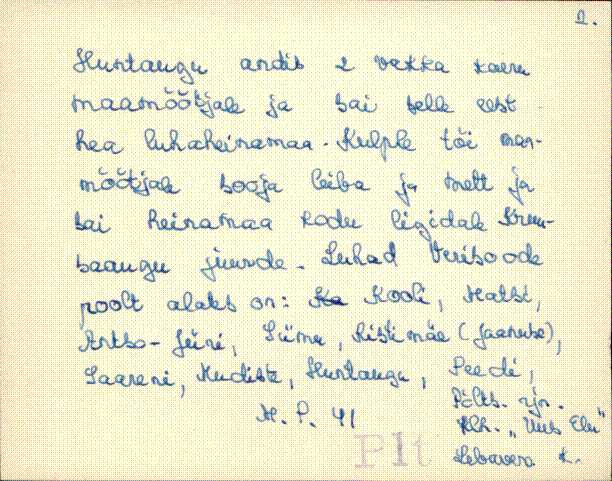 2.
Huntaugu andis 2 vakka kaeru
maamõõtjale ja sai selle eest
hea luhaheinamaa. Kulple tõi maa-
mõõtjale sooja leiba ja mett ja
sai heinamaa kodu ligidale Kruu-
saaugu juurde. Luhad Verisoode
poolt alates on: Ka Kooli, Matsi,
Antso-Jüri, Siimu, Ristimäe (Jaanuse),
Saareni, Kudiste, Huntaugu, Peedi,
M. P. 41
Põlts. rjn.
Klh. „Uus Elu"
Lebavere k.
Plt